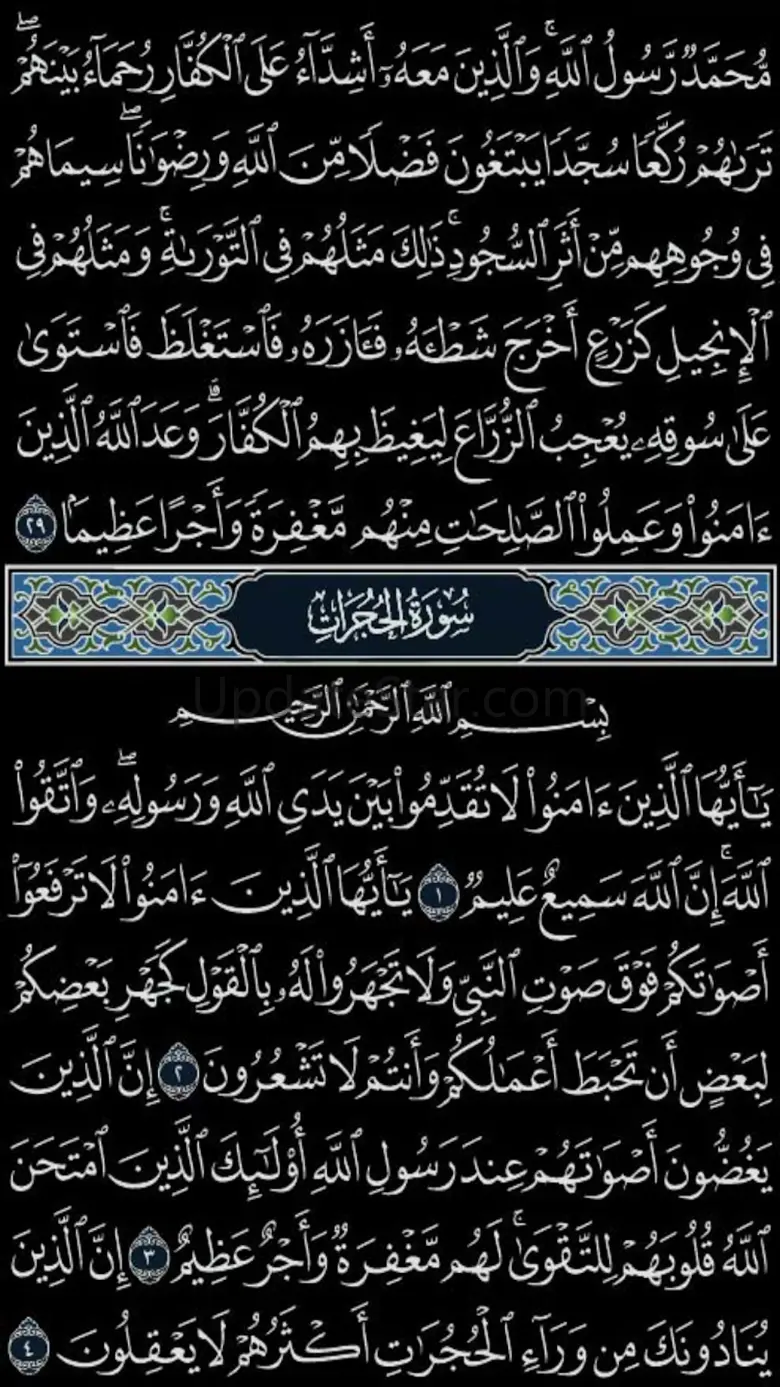 مُّحَمَّدٌ رَّسُولُ ٱللَّهِۚ وَٱلَّذِينَ مَعَهُۥٓ أَشِدَّآءُ عَلَى ٱلْكُفَّارِ رُحَمَآءُ بَيْنَهُمْۖ
تَرَىٰهُمْ رُكَّعًا سُجَّدًا يَبْتَغُونَ فَضْلًا مِّنَ ٱللَّهِ وَرِضْوَٰنًاۖ سِيمَاهُمْ
فِى وُجُوهِهِم مِّنْ أَثَرِ ٱلسُّجُودِۚ ذَٰلِكَ مَثَلُهُمْ فِى ٱلتَّوْرَىٰةِۚ وَمَثَلُهُمْ فِى
ٱلْإِنجِيلِ كَزَرْعٍ أَخْرَجَ شَطْـَٔهُۥ فَـَٔازَرَهُۥ فَٱسْتَغْلَظَ فَٱسْتَوَىٰ
عَلَىٰ سُوقِهِۦ يُعْجِبُ ٱلزُّرَّاعَ لِيَغِيظَ بِهِمُ ٱلْكُفَّارَۗ وَعَدَ ٱللَّهُ ٱلَّذِينَ
ءَامَنُوا۟ وَعَمِلُوا۟ ٱلصَّٰلِحَٰتِ مِنْهُم مَّغْفِرَةً وَأَجْرًا عَظِيمًۢا ٢٩
سُورَةُ الحُجُرَاتِ
بِسْمِ ٱللَّهِ ٱلرَّحْمَٰنِ ٱلرَّحِيمِ
UpdateStar.com
يَٰٓأَيُّهَا ٱلَّذِينَ ءَامَنُوا۟ لَا تُقَدِّمُوا۟ بَيْنَ يَدَىِ ٱللَّهِ وَرَسُولِهِۦۖ وَٱتَّقُوا۟
ٱللَّهَۚ إِنَّ ٱللَّهَ سَمِيعٌ عَلِيمٌ ١ يَٰٓأَيُّهَا ٱلَّذِينَ ءَامَنُوا۟ لَا تَرْفَعُوٓا۟
أَصْوَٰتَكُمْ فَوْقَ صَوْتِ ٱلنَّبِىِّ وَلَا تَجْهَرُوا۟ لَهُۥ بِٱلْقَوْلِ كَجَهْرِ بَعْضِكُمْ
لِبَعْضٍ أَن تَحْبَطَ أَعْمَٰلُكُمْ وَأَنتُمْ لَا تَشْعُرُونَ ٢ إِنَّ ٱلَّذِينَ
يَغُضُّونَ أَصْوَٰتَهُمْ عِندَ رَسُولِ ٱللَّهِ أُو۟لَٰٓئِكَ ٱلَّذِينَ ٱمْتَحَنَ
ٱللَّهُ قُلُوبَهُمْ لِلتَّقْوَىٰۚ لَهُم مَّغْفِرَةٌ وَأَجْرٌ عَظِيمٌ ٣ إِنَّ ٱلَّذِينَ
يُنَادُونَكَ مِن وَرَآءِ ٱلْحُجُرَٰتِ أَكْثَرُهُمْ لَا يَعْقِلُونَ ٤